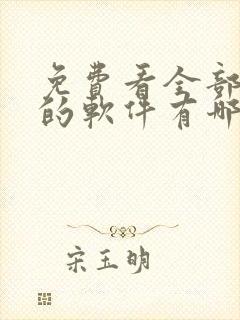 免費看全部
的軟件有哪
宋玉明